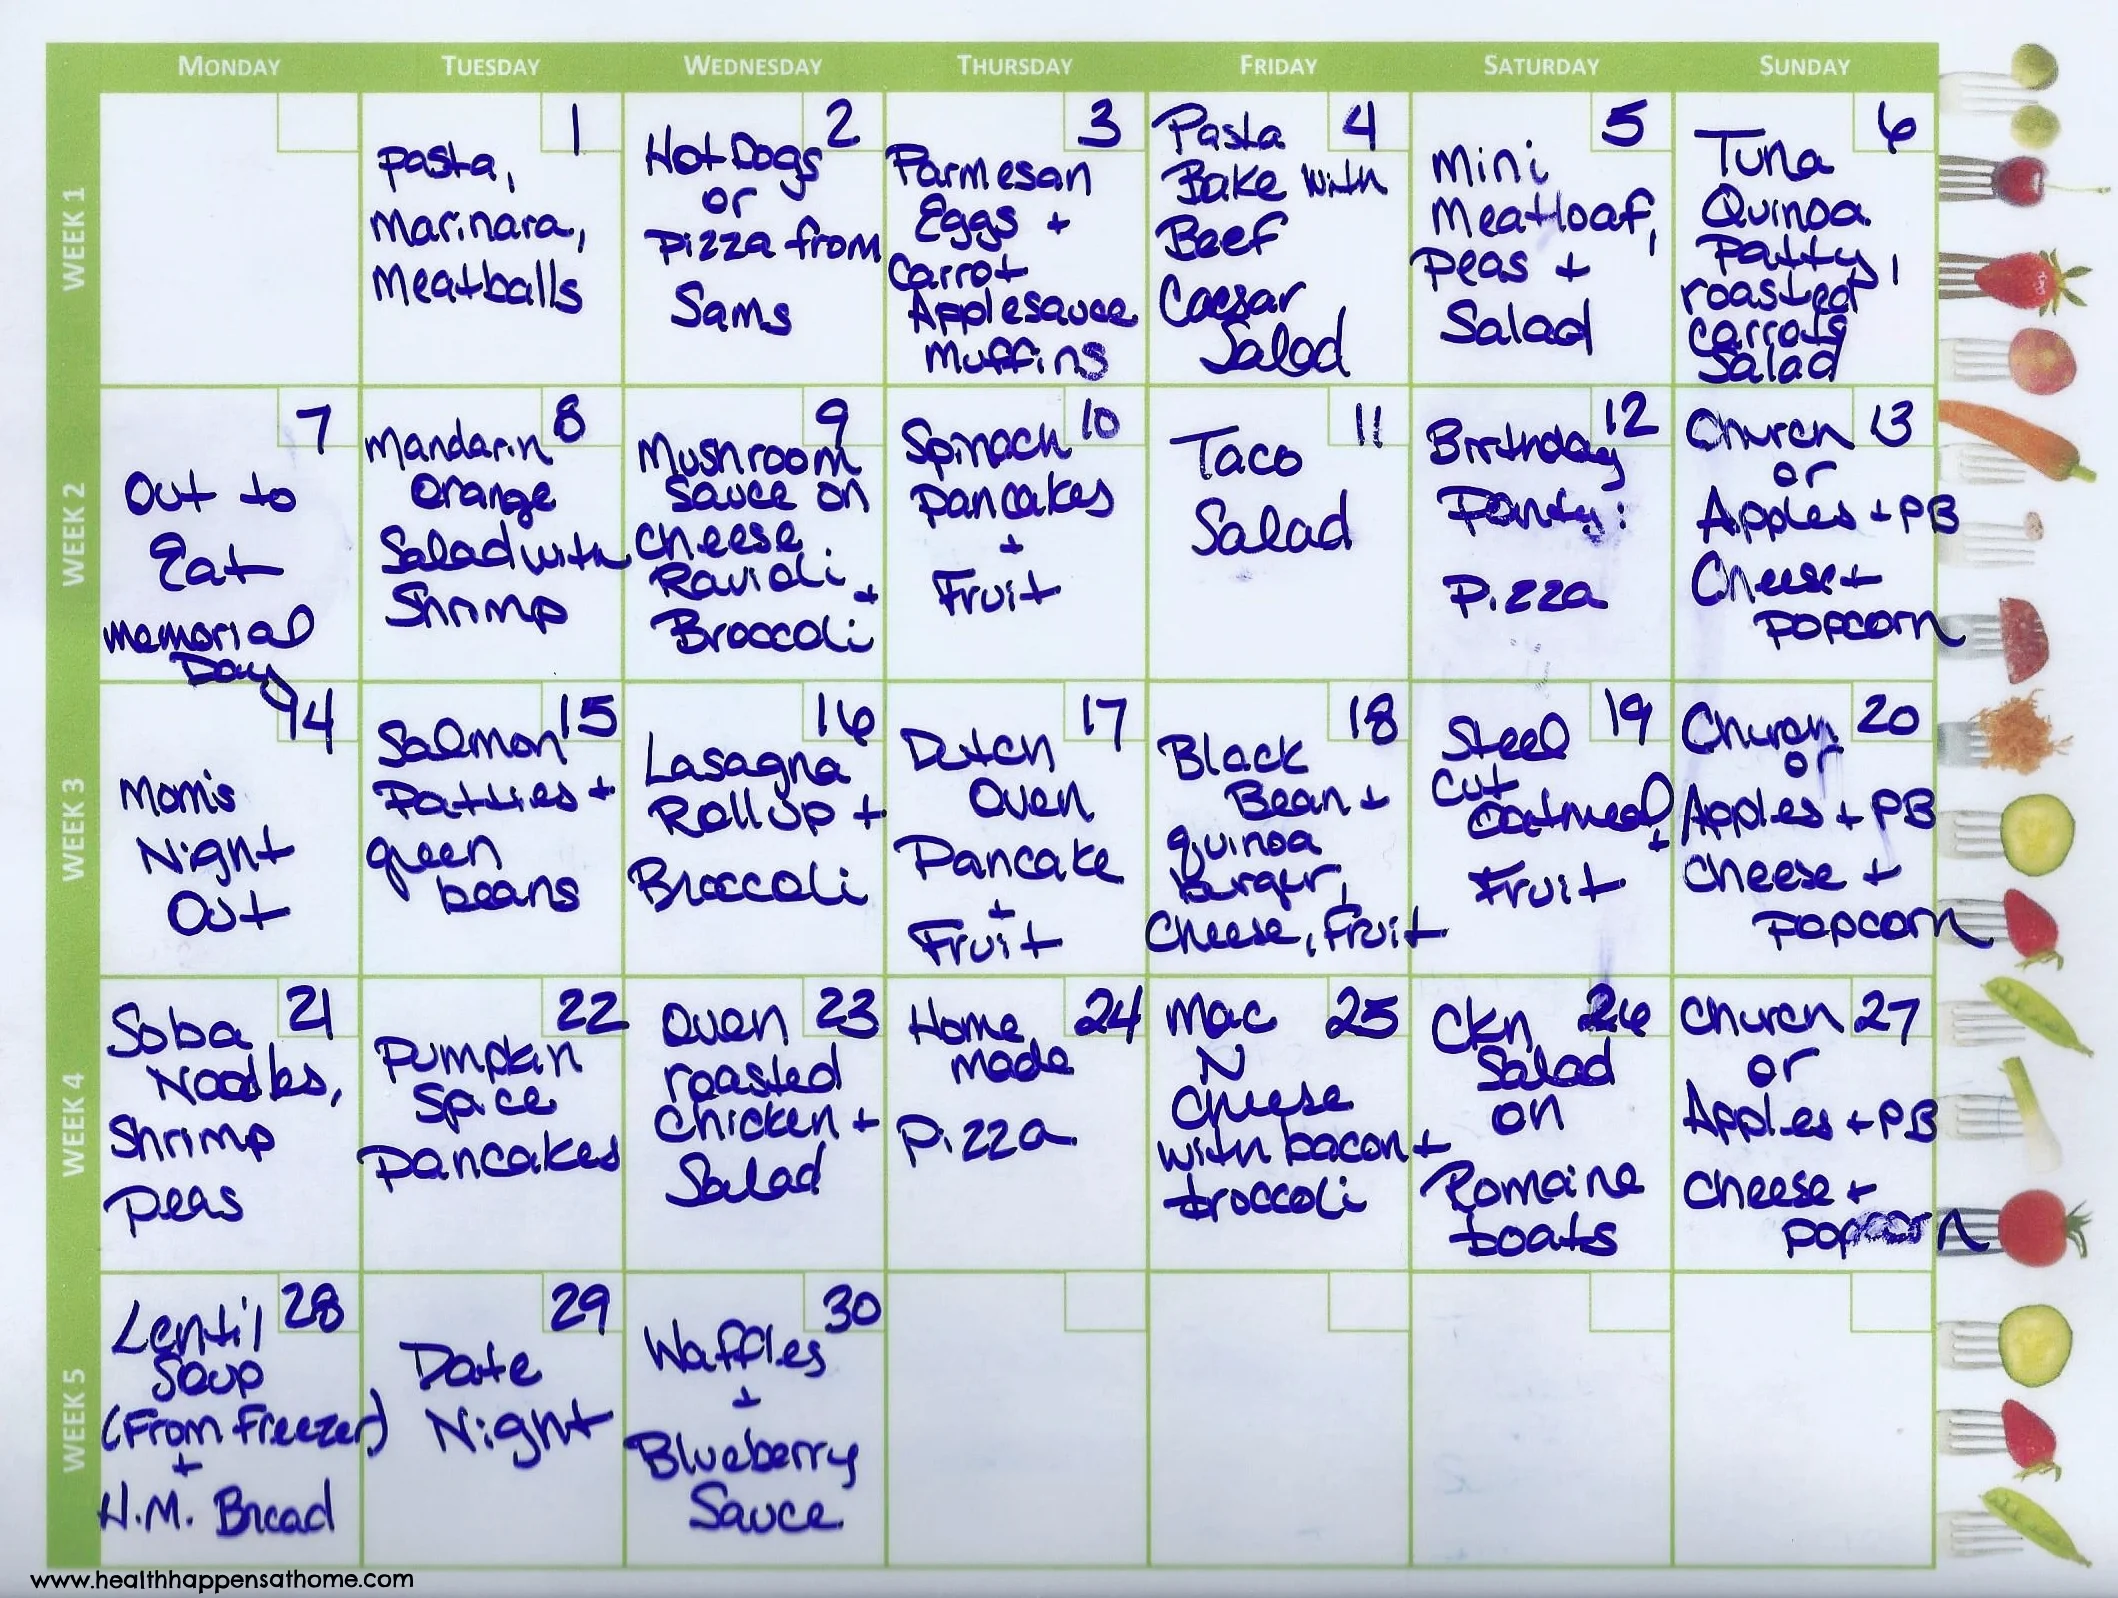 MONDAY TUESDAY WEDNESDAY THURSDAY FRIDAY SATURDAY SUNDAY
WEEK 1
1
pasta,
Marinara,
Meatballs
2
Hot Dogs
or
Pizza from
Sams
3
Parmesan
Eggs +
Carrot
Applesauce
Muffins
4
Pasta
Bake with
Beef
Caesar
Salad
5
Mini
Meatloaf,
Peas +
Salad
6
Tuna
Quinoa
Patty,
roasted
carrots
Salad
WEEK 2
7
Out to
Eat
Memorial
Day
8
Mandarin
Orange
Salad with
Shrimp
9
Mushroom
Sauce on
Cheese
Ravioli +
Broccoli
10
Spinach
Pancakes
+
Fruit
11
Taco
Salad
12
Birthday
Party:
Pizza
13
Church
or
Apples + PB
Cheese +
Popcorn
WEEK 3
14
Mom's
Night
Out
15
Salmon
Patties +
green
beans
16
Lasagna
Rollup +
Broccoli
17
Dutch
Oven
Pancake
+
Fruit
18
Black
Bean +
quinoa
burger,
Cheese, Fruit
19
Steel
Cut
Oatmeal +
Fruit
20
Church
or
Apples + PB
Cheese +
Popcorn
WEEK 4
21
Soba
Noodles,
Shrimp
Peas
22
Pumpkin
Spice
Pancakes
23
Oven
roasted
Chicken +
Salad
24
Home
made
Pizza
25
Mac
N
Cheese
with bacon +
broccoli
26
Ckn
Salad
on
Romaine
boats
27
Church
or
Apples + PB
Cheese +
popcorn
WEEK 5
28
Lentil
Soup
(From Freezer)
+
H.M. Bread
29
Date
Night
30
Waffles
+
Blueberry
Sauce
www.healthhappensathome.com